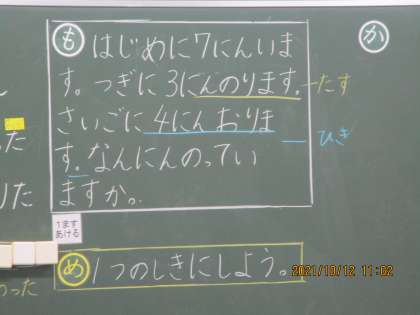 も はじめに7にんいま
す。つぎに3にんのります。 たす
さいごに4にんおりま
す。なんにんのってい ひき
ますか。
か
1ます
あける
め 1つのしきにしよう。
2021/10/12 11:02
った
りた
わった